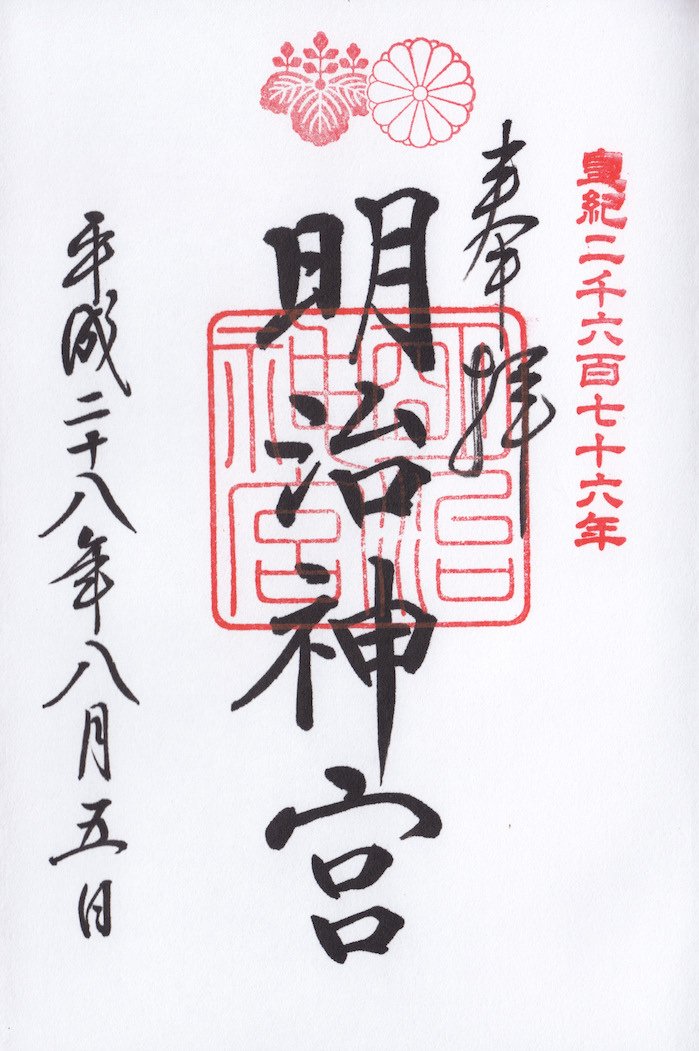 皇紀二千六百七十六年
奉拝
明治神宮
明治神宮
平成二十八年八月五日